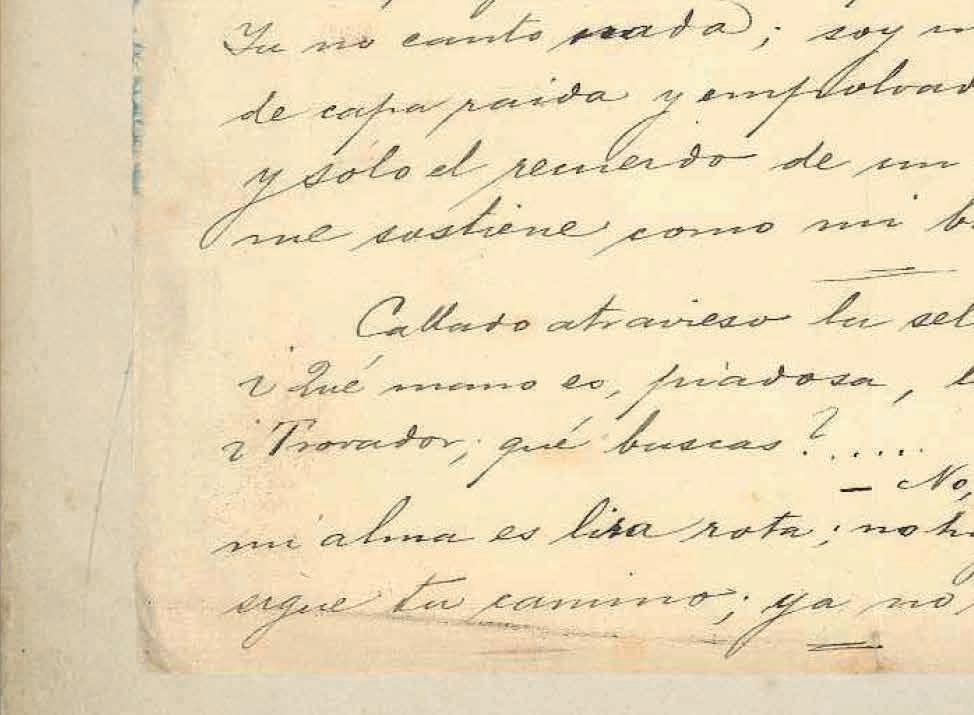 Yu no canto nada; soy m
de capa raida y empolvad
y solo el recuerdo de un
me sostiene como mi b
Callado atravieso tu sel
¿Qué mano es, piadosa, l
¿Trovador, qué buscas?.....
— No,
mi alma es lira rota; no h
sigue tu camino; ya no